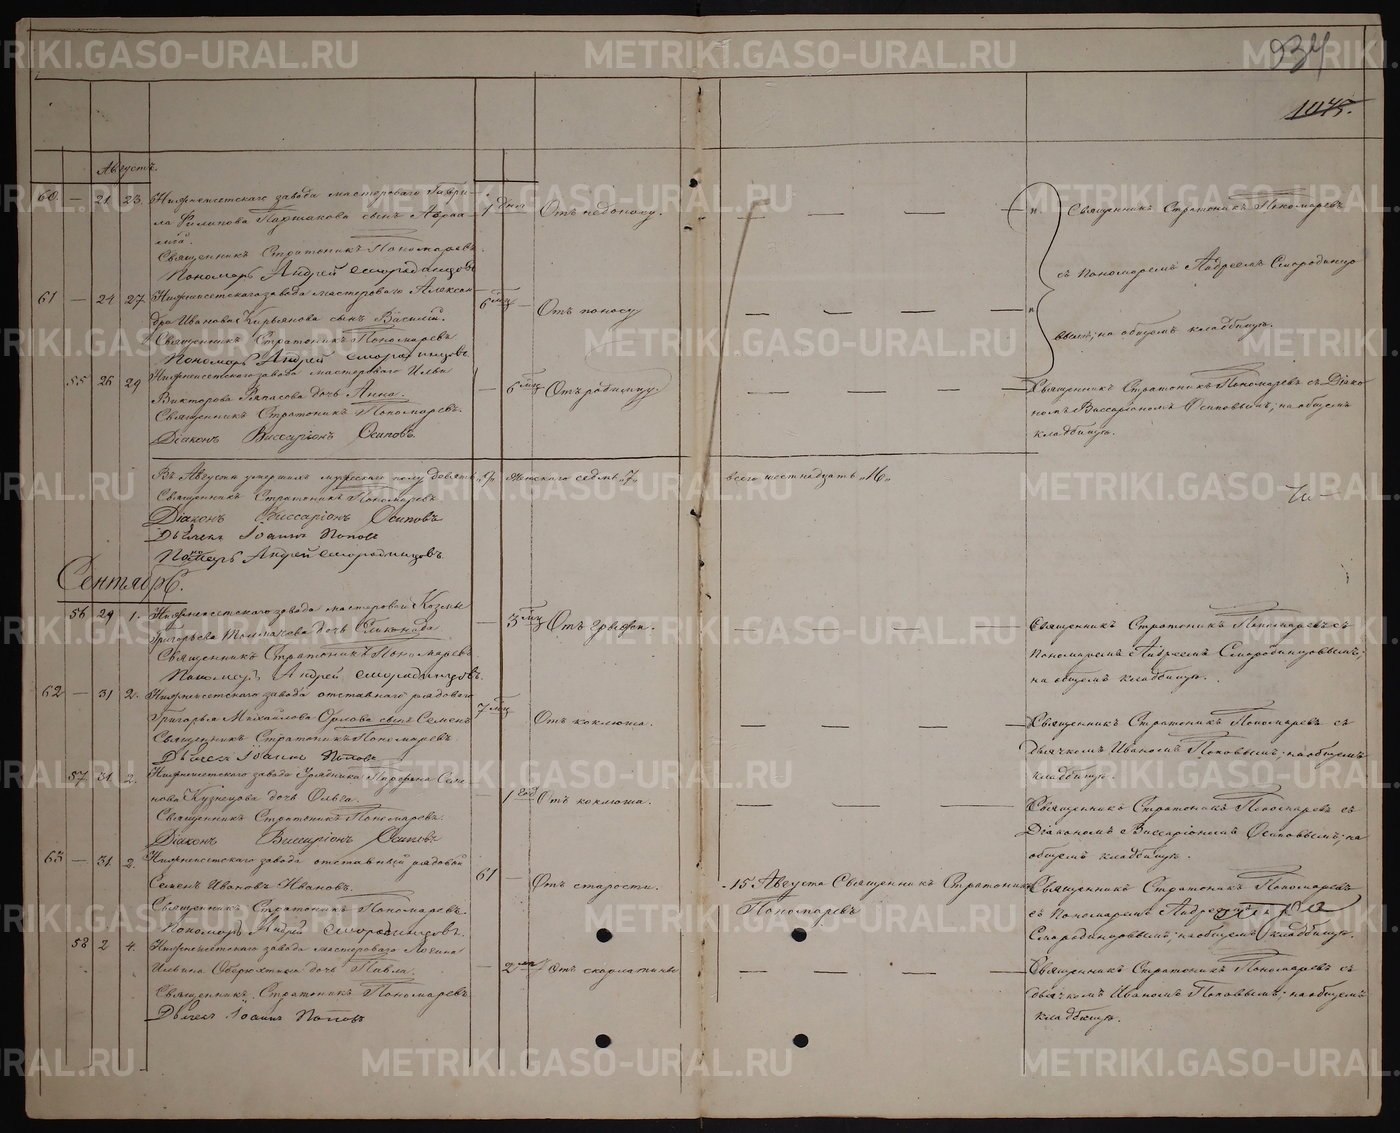 934
1045.
Августъ.
60 — 21 23. Нижнеисетскаго завода мастероваго Гаври-
ла Филипова сынъ Авраа-
мій.
1 дня Отъ недоноску. — — — —
Священникъ Стратоникъ Пономаревъ
Пономарь Андрей Смородинцовъ
Священникъ Стратоникъ Пономаревъ
съ Пономаремъ Андреемъ Смородинцо
вымъ; на общемъ кладбищѣ.
61 — 24 27 Нижнеисетскаго завода мастероваго Алексан-
дра Иванова Кирьянова сынъ Василій.
6 мц — Отъ поносу — — — —
Священникъ Стратоникъ Пономаревъ
Пономарь Андрей Смородинцовъ
55 26 29 Нижнеисетскаго завода мастероваго Ильи
Викторова дочь Анна.
— 6 мц Отъ родимцу — — — —
Священникъ Стратоникъ Пономаревъ.
Діаконъ Виссаріонъ Осиповъ.
Священникъ Стратоникъ Пономаревъ съ Діако
номъ Виссаріономъ Осиповымъ; на общемъ
кладбищѣ.
Въ Августѣ умершихъ мужескаго полу девять „9„ женскаго седмь „7„ всего шестнадцать „16„
Священникъ Стратоникъ Пономаревъ
Діаконъ Виссаріонъ Осиповъ
Дьячекъ Іоаннъ Поповъ
Пономарь Андрей Смородинцовъ.
Сентябрь.
56 29 1. Нижнеисетскаго завода мастероваго Козмы
Григорьева Толмачева дочь
— 3 мц Отъ грыжи. — — — —
Священникъ Стратоникъ Пономаревъ
Пономарь Андрей Смородинцовъ.
Священникъ Стратоникъ Пономаревъ съ
Пономаремъ Андреемъ Смородинцовымъ;
на общемъ кладбищѣ.
62 — 31 2. Нижнеисетскаго завода отставнаго рядоваго
Григорья Михайлова Орлова сынъ Семенъ
7 мц Отъ коклюша. — — — —
Священникъ Стратоникъ Пономаревъ
Дьячекъ Іоаннъ Поповъ
Священникъ Стратоникъ Пономаревъ съ
Дьячкомъ Иваномъ Поповымъ; на общемъ
кладбищѣ.
57 31 2. Нижнеисетскаго завода Урядника Семе-
нова Кузнецова дочь Ольга.
— 1 год Отъ коклюша. — — —
Священникъ Стратоникъ Пономаревъ.
Діаконъ Виссаріонъ Осиповъ
Священникъ Стратоникъ Пономаревъ съ
Діакономъ Виссаріономъ Осиповымъ; на
общемъ кладбищѣ.
63 — 31 2. Нижнеисетскаго завода отставный рядовой
Семенъ Ивановъ Ивановъ.
61 — Отъ старости.
15 Августа Священникъ Стратоникъ
Пономаревъ
Священникъ Стратоникъ Пономаревъ.
Пономарь Андрей Смородинцовъ.
Священникъ Стратоникъ Пономаревъ
съ Пономаремъ Андреемъ
Смородинцовымъ; на общемъ кладбищѣ.
58 2 4. Нижнеисетскаго завода мастероваго Логина
Ильина дочь Павла.
— 2 Отъ скарлатины — — — —
Священникъ Стратоникъ Пономаревъ
Дьячекъ Іоаннъ Поповъ
Священникъ Стратоникъ Пономаревъ съ
Дьячкомъ Иваномъ Поповымъ; на общемъ
кладбищѣ.
METRIKI.GASO-URAL.RU